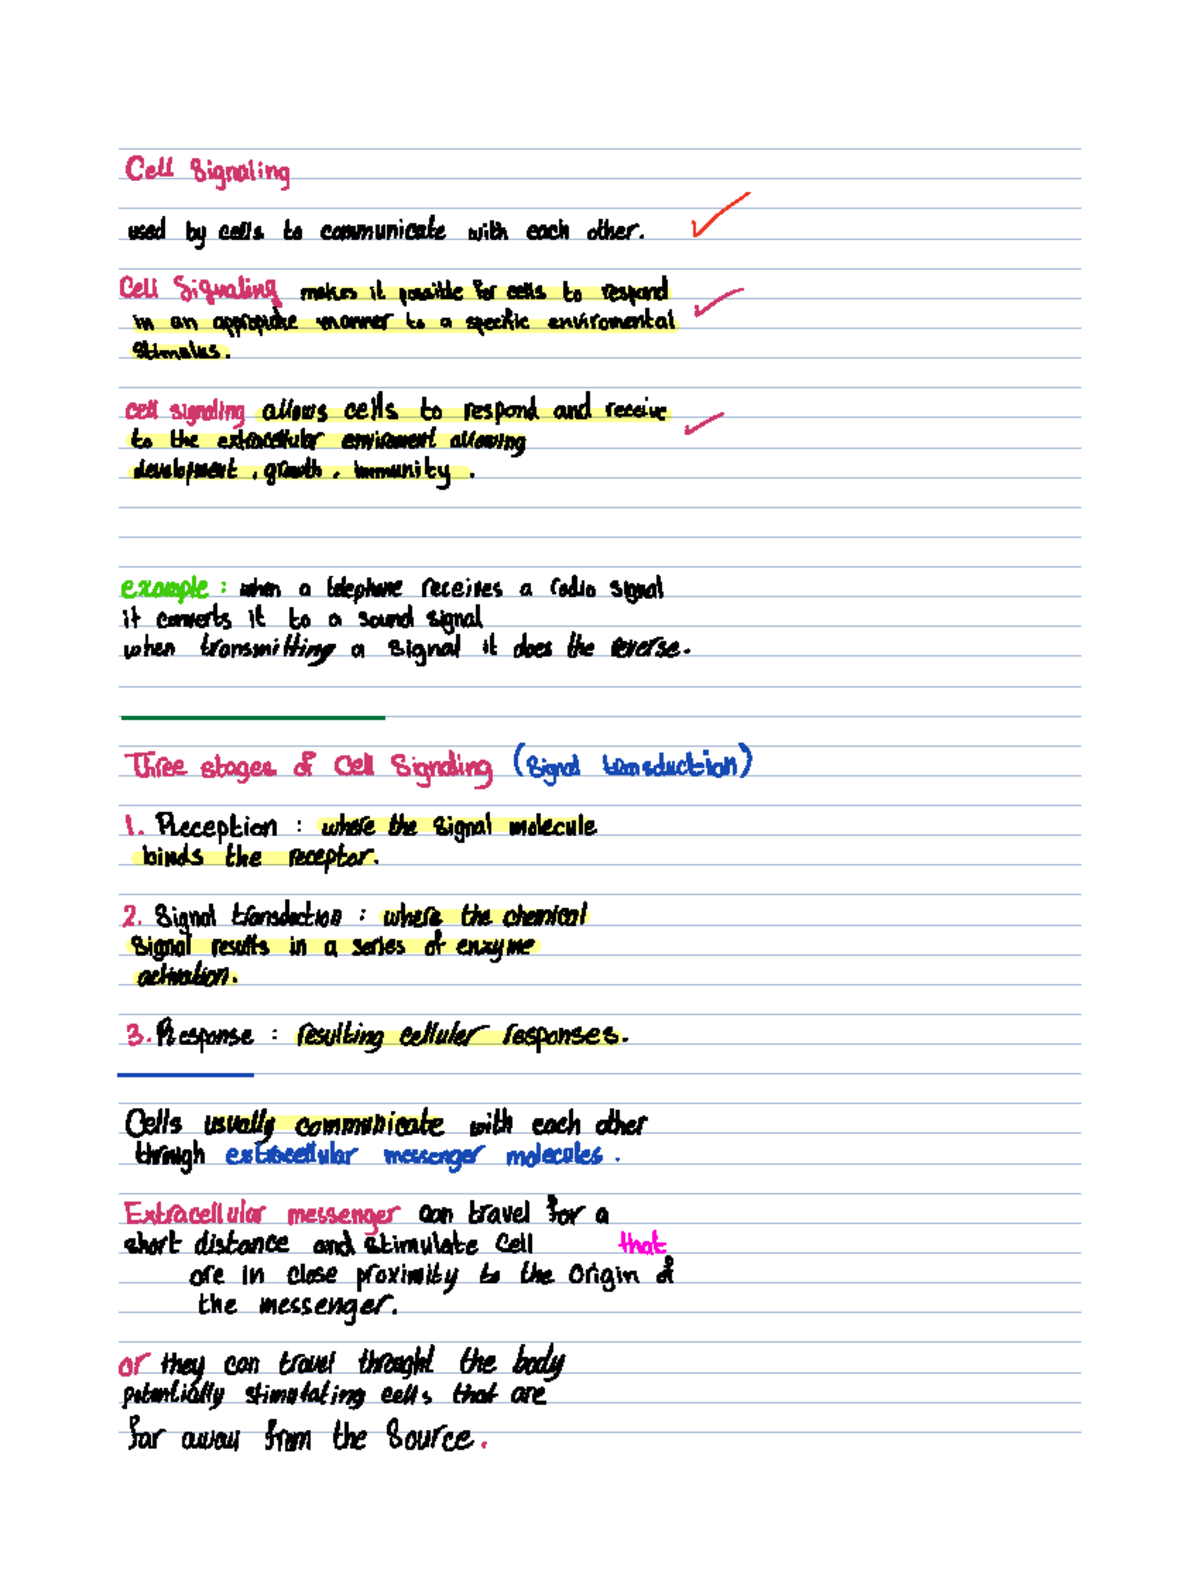 Cell Signaling
used by cells to communicate with each other.
Cell Signaling makes it possible for cells to respond
in an appropiate manner to a specific enviromental
stimulus.
cell signaling allows cells to respond and receive
to the extracellular enviroment allowing
development, growth, immunity.
example: when a telephone receives a radio signal
it converts it to a sound signal
when transmitting a signal it does the reverse.
Three stages of Cell Signaling (Signal transduction)
1. Reception: where the signal molecule
binds the receptor.
2. Signal transduction: where the chemical
signal results in a series of enzyme
activation.
3. Response: resulting cellular responses.
Cells usually communicate with each other
through extracellular messenger molecules.
Extracellular messenger can travel for a
short distance and stimulate cell that
are in close proximity to the origin of
the messenger.
or they can travel throught the body
potentially stimulating cells that are
far away from the source.